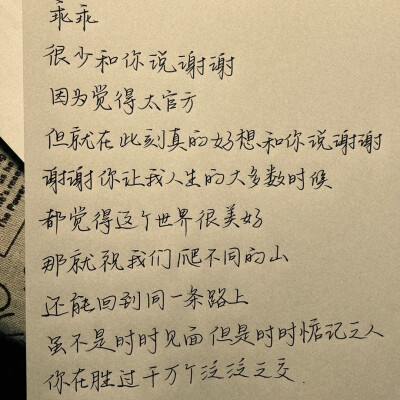 乖乖
很少和你说谢谢
因为觉得太官方
但就在此刻真的好想和你说谢谢
谢谢你让我人生的大多数时候
都觉得这个世界很美好
那就祝我们爬不同的山
还能回到同一条路上
虽不是时时见面但是时时惦记之人
你在胜过千万个泛泛之交.